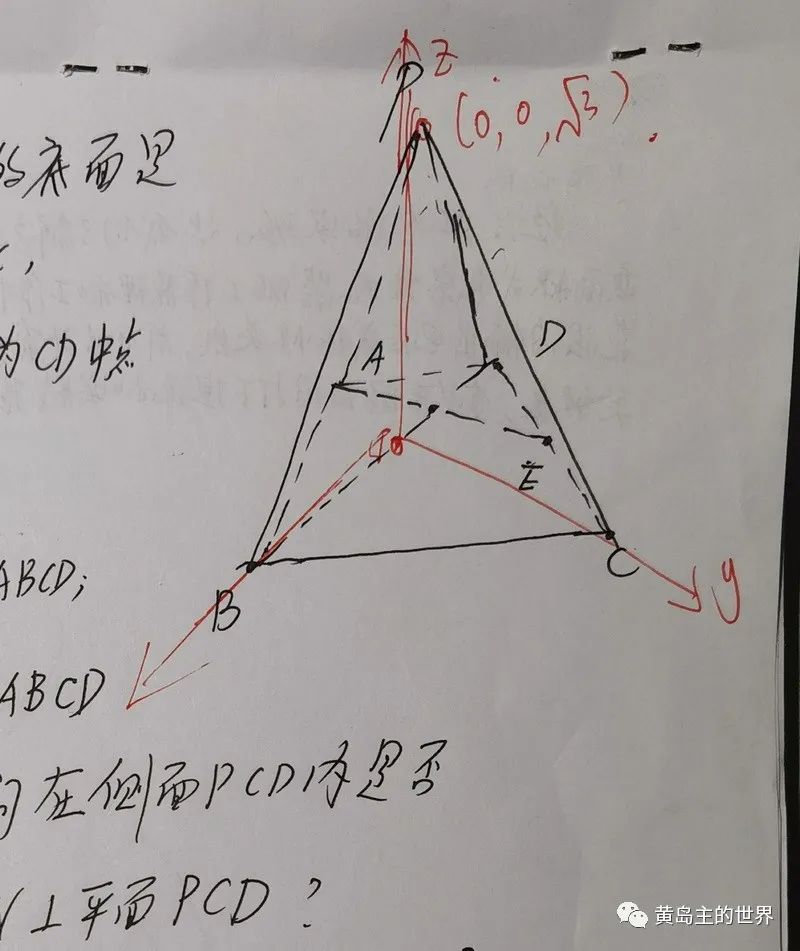 P z
(0, 0, √3).
的底面是
为CD中点
A
D
E
B
C
y
ABCD;
ABCD
在侧面PCD内是否
⊥平面PCD?
黄岛主的世界